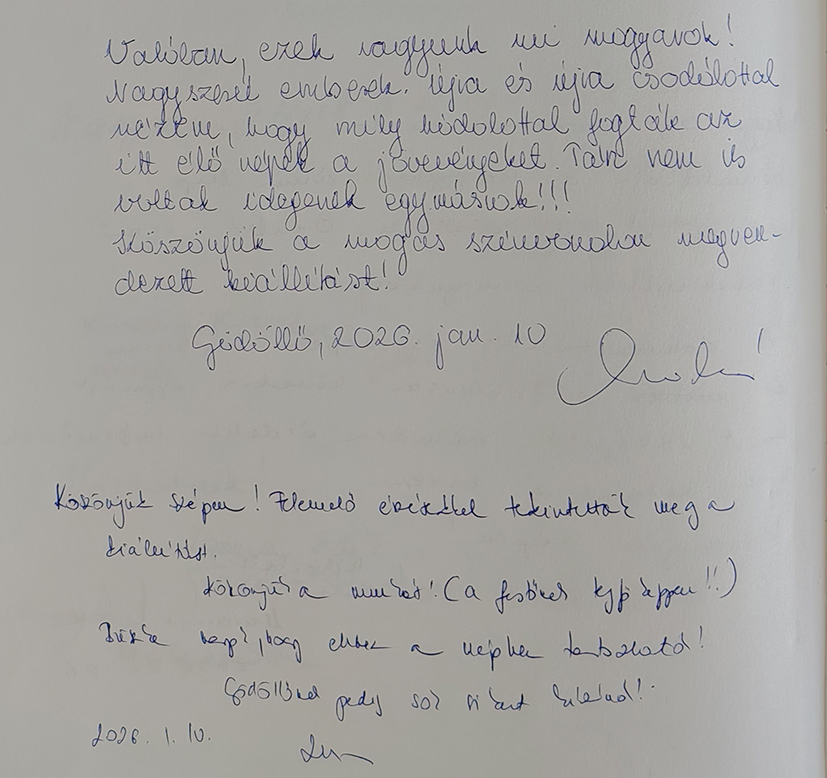 Valóban, ezek vagyunk mi magyarok!
Nagyszerű emberek. Újra és újra csodálattal
néztem, hogy mily hódolattal fogták az
itt élő népek a jövevényeket. Talán nem is
voltak idegenek egymásnak!!!
Köszönjük a magas színvonalon megren-
dezett kiállítást!
Gödöllő, 2026. jan. 10
Köszönjük szépen! Felemelő érzéssel tekintettük meg a
kiállítást.
Köszönjük a munkát! (a festőnek !!)
Büszke , hogy ehhez a néphez tartozható!
Gödöllőnek pedig sok sikert kívánok!
2026. 1. 10.